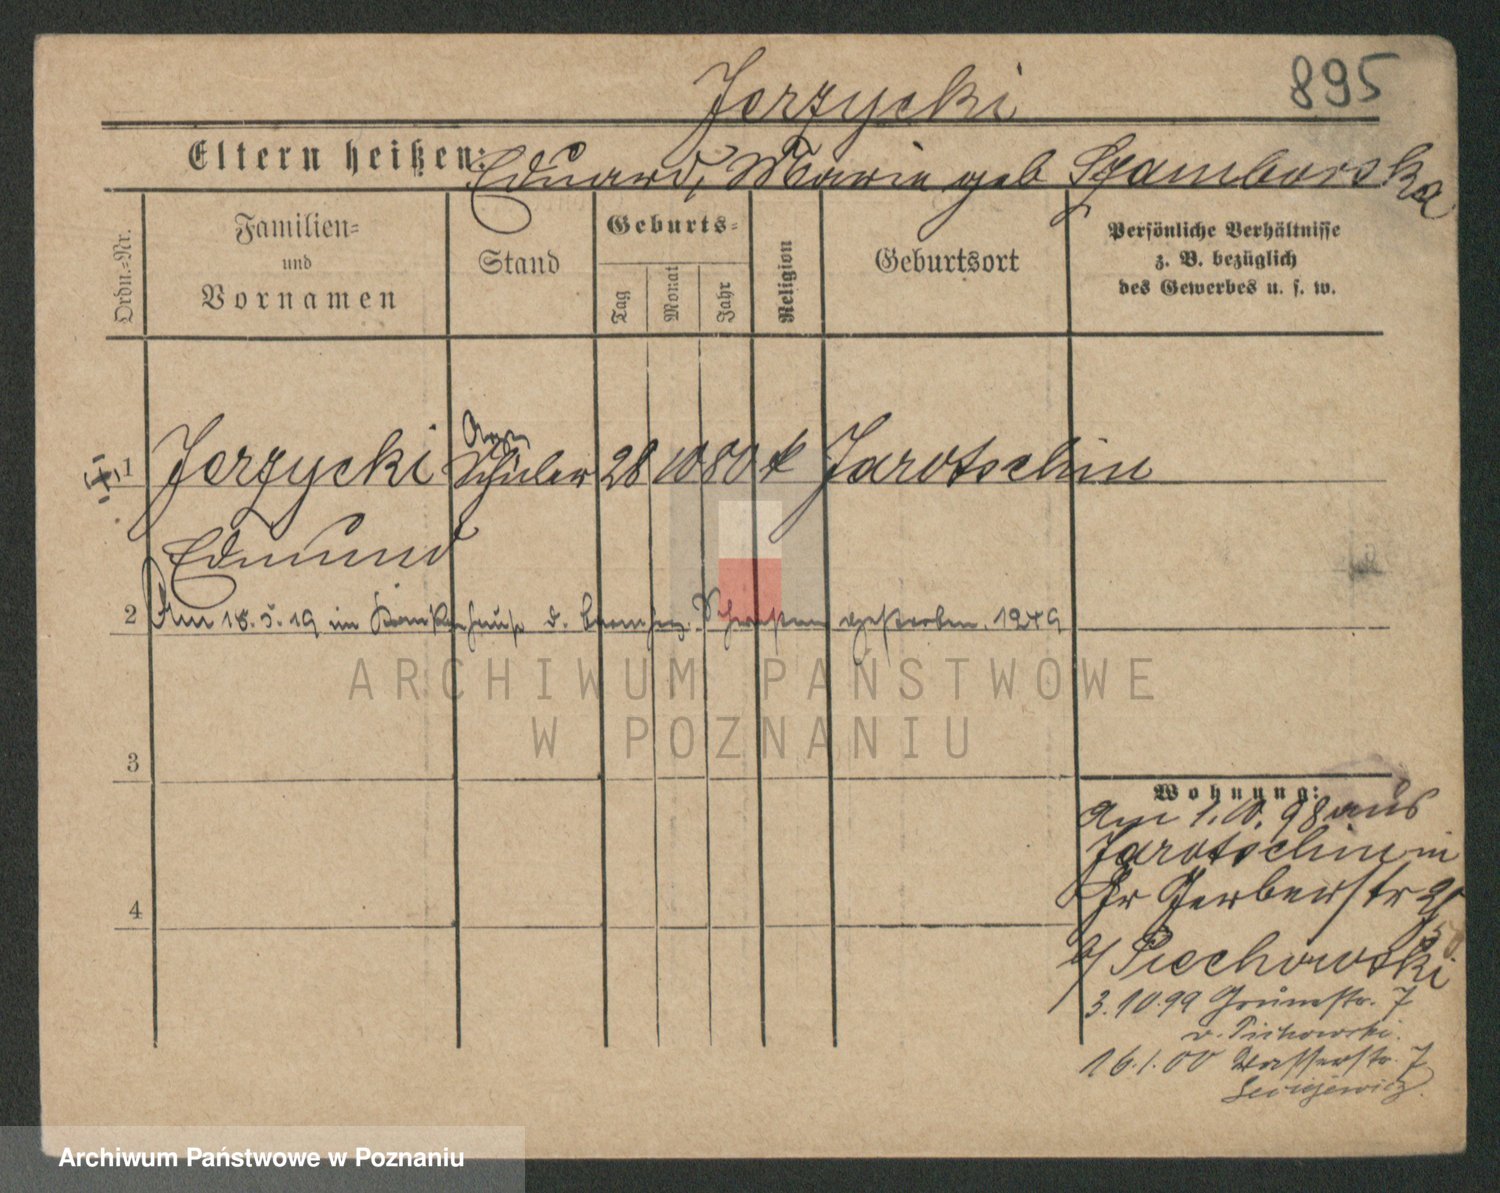 895
Jerzycki
Eltern heißen: Eduard, Marie geb Szamborska
Ordn.=Nr.
Familien=
und
Vornamen
Stand
Geburts=
Tag
Monat
Jahr
Religion
Geburtsort
Persönliche Verhältnisse
z. B. bezüglich
des Gewerbes u. s. w.
1 Jerzycki Schüler 28 10 80 k Jarotschin
Edmund
2 Am 18.5.19 im Krankenhause d. barmherz. Schwestern gestorben. 1249
ARCHIWUM PAŃSTWOWE
W POZNANIU
3
4
Wohnung:
Am 1.10.98 aus
Jarotschin in
Gr Gerberstr
b/ Piechowski
3.10.99 Grünestr. 7
v. Pichowski.
16.1.00 Wasserstr. 7
Archiwum Państwowe w Poznaniu